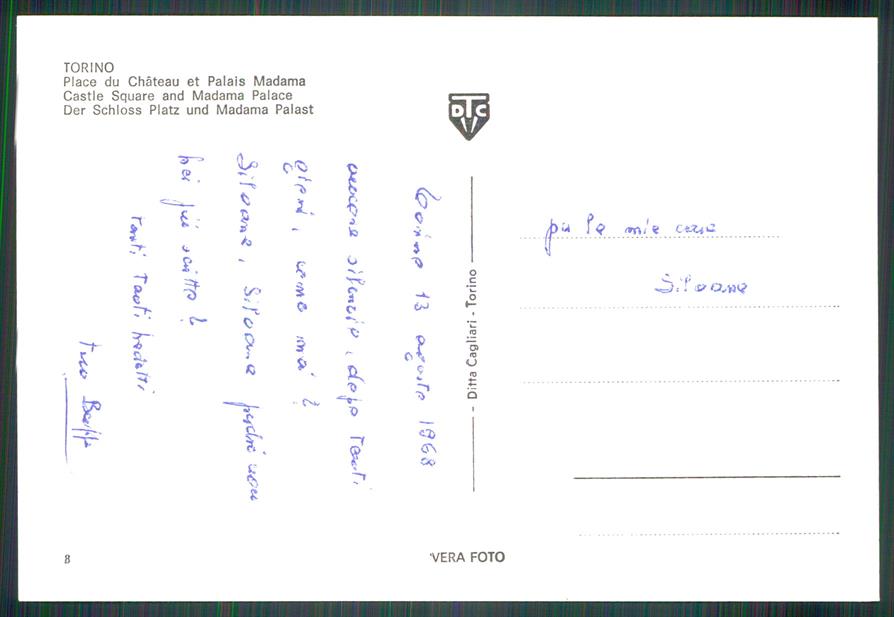 TORINO
Place du Château et Palais Madama
Castle Square and Madama Palace
Der Schloss Platz und Madama Palast
DTC
Torino 13 agosto 1968
ancora silenzio, dopo tanti
giorni, come mai?
Silvana, Silvana perché non
hai più scritto?
Tanti Tanti
tuo
per la mia cara
Silvana
- Ditta Cagliari - Torino -
8
VERA FOTO